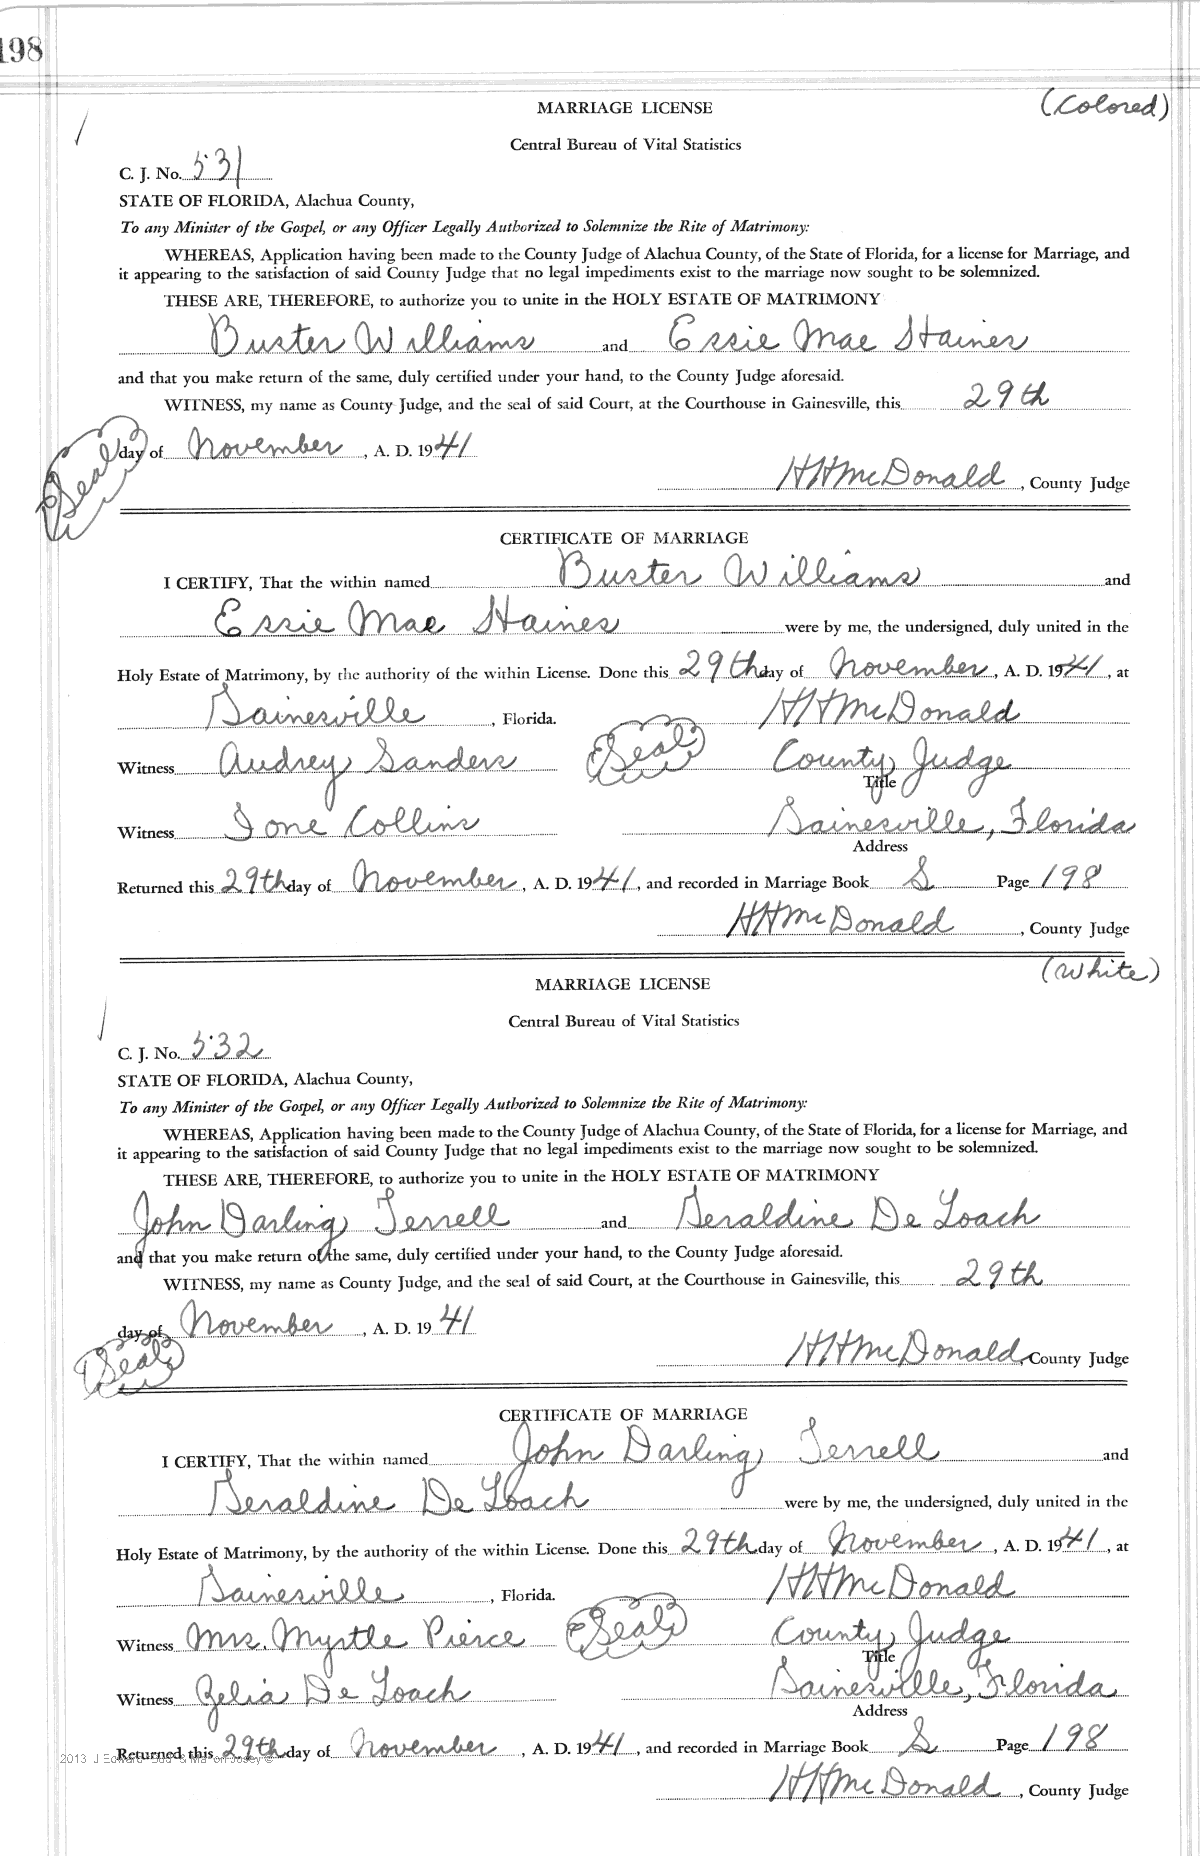 198
MARRIAGE LICENSE (Colored)
Central Bureau of Vital Statistics
C. J. No. 531
STATE OF FLORIDA, Alachua County,
To any Minister of the Gospel, or any Officer Legally Authorized to Solemnize the Rite of Matrimony:
WHEREAS, Application having been made to the County Judge of Alachua County, of the State of Florida, for a license for Marriage, and
it appearing to the satisfaction of said County Judge that no legal impediments exist to the marriage now sought to be solemnized.
THESE ARE, THEREFORE, to authorize you to unite in the HOLY ESTATE OF MATRIMONY
Buster Williams and Essie Mae Haines
and that you make return of the same, duly certified under your hand, to the County Judge aforesaid.
WITNESS, my name as County Judge, and the seal of said Court, at the Courthouse in Gainesville, this 29th
(Seal) day of November, A. D. 1941
HHMcDonald, County Judge
CERTIFICATE OF MARRIAGE
I CERTIFY, That the within named Buster Williams and
Essie Mae Haines were by me, the undersigned, duly united in the
Holy Estate of Matrimony, by the authority of the within License. Done this 29th day of November, A. D. 1941, at
Gainesville, Florida. HHMcDonald
Witness Audrey Sanders (Seal) County Judge
Title
Witness Ione Collins Gainesville, Florida
Address
Returned this 29th day of November, A. D. 1941, and recorded in Marriage Book S Page 198
HHMcDonald, County Judge
MARRIAGE LICENSE (White)
Central Bureau of Vital Statistics
C. J. No. 532
STATE OF FLORIDA, Alachua County,
To any Minister of the Gospel, or any Officer Legally Authorized to Solemnize the Rite of Matrimony:
WHEREAS, Application having been made to the County Judge of Alachua County, of the State of Florida, for a license for Marriage, and
it appearing to the satisfaction of said County Judge that no legal impediments exist to the marriage now sought to be solemnized.
THESE ARE, THEREFORE, to authorize you to unite in the HOLY ESTATE OF MATRIMONY
John Darling Terrell and Geraldine De Loach
and that you make return of the same, duly certified under your hand, to the County Judge aforesaid.
WITNESS, my name as County Judge, and the seal of said Court, at the Courthouse in Gainesville, this 29th
day of November, A. D. 1941
(Seal) HHMcDonald, County Judge
CERTIFICATE OF MARRIAGE
I CERTIFY, That the within named John Darling Terrell and
Geraldine De Loach were by me, the undersigned, duly united in the
Holy Estate of Matrimony, by the authority of the within License. Done this 29th day of November, A. D. 1941, at
Gainesville, Florida. HHMcDonald
Witness Mrs. Myrtle Pierce (Seal) County Judge
Title
Witness Zelia De Loach Gainesville, Florida
Address
2013 J Edward
Returned this 29th day of November, A. D. 1941, and recorded in Marriage Book S Page 198
HHMcDonald, County Judge